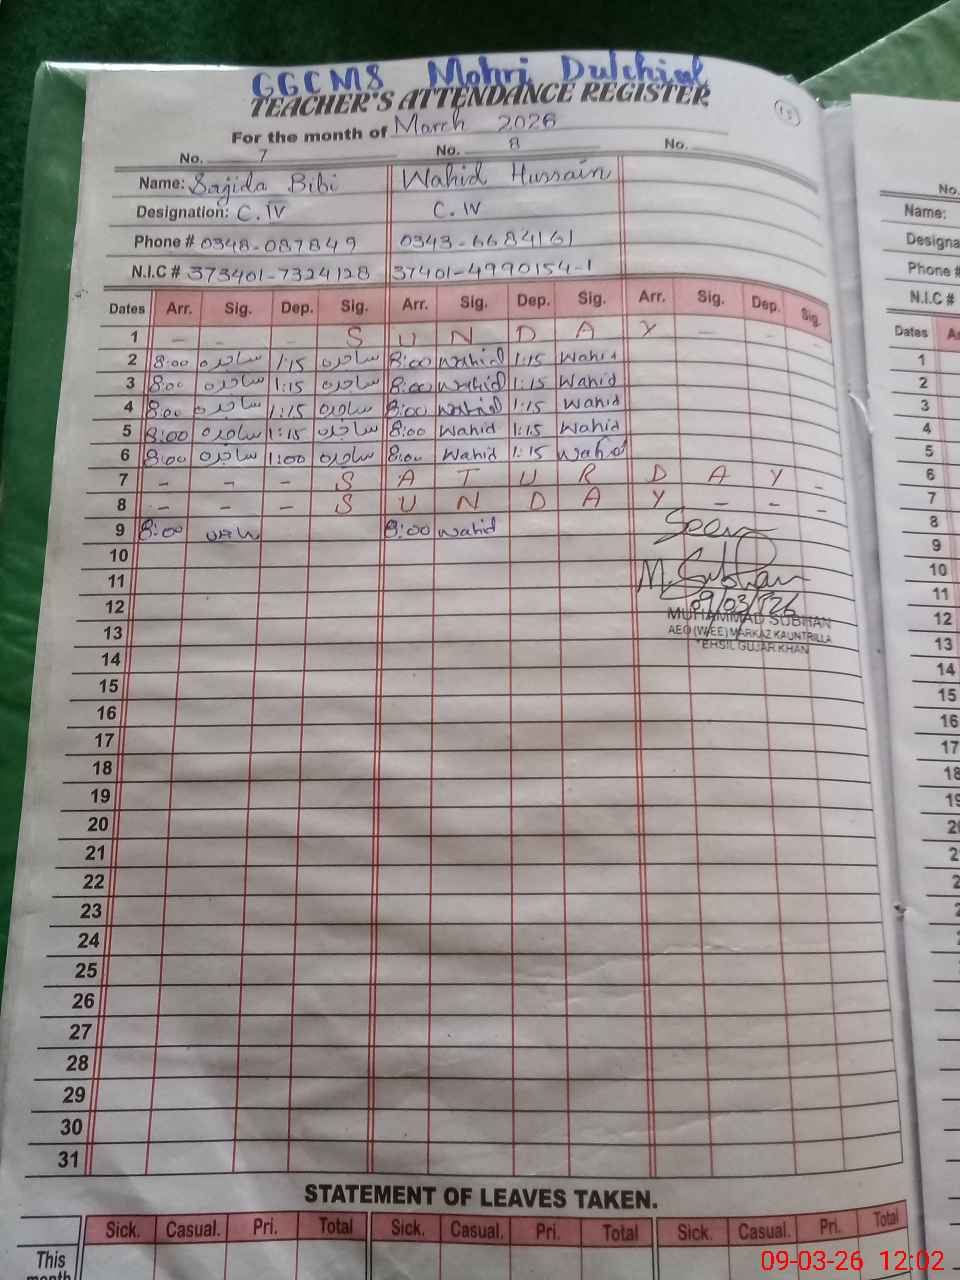 GGCMS Mohri Dulchial
TEACHER'S ATTENDANCE REGISTER
15
For the month of March 2026
No. 7 No. 8 No.
Name: Sajida Bibi Wahid Hussain
Designation: C.IV C.IV
Phone # 0348-087849 0343-6684161
N.I.C # 373401-7324128 37401-4990154-1
Dates Arr. Sig. Dep. Sig. Arr. Sig. Dep. Sig. Arr. Sig. Dep. Sig.
1 - - - S U N D A Y - - -
2 8:00 ساجدہ 1:15 ساجدہ 8:00 Wahid 1:15 Wahid
3 8:00 ساجدہ 1:15 ساجدہ 8:00 Wahid 1:15 Wahid
4 8:00 ساجدہ 1:15 ساجدہ 8:00 Wahid 1:15 Wahid
5 8:00 ساجدہ 1:15 ساجدہ 8:00 Wahid 1:15 Wahid
6 8:00 ساجدہ 1:00 ساجدہ 8:00 Wahid 1:15 Wahid
7 - - - S A T U R D A Y -
8 - - - S U N D A Y - - -
9 8:00 ساجدہ 8:00 Wahid
Seen
10
11 M. Subhan
12 09/03/26
MUHAMMAD SUBHAN
13 AEO (WEE) MARKAZ KAUNTRILLA
TEHSIL GUJAR KHAN
14
15
16
17
18
19
20
21
22
23
24
25
26
27
28
29
30
31
STATEMENT OF LEAVES TAKEN.
Sick. Casual. Pri. Total Sick. Casual. Pri. Total Sick. Casual. Pri. Total
This
month
No.
Name:
Designa
Phone #
N.I.C #
Dates A
1
2
3
4
5
6
7
8
9
10
11
12
13
14
15
16
17
18
19
20
09-03-26 12:02